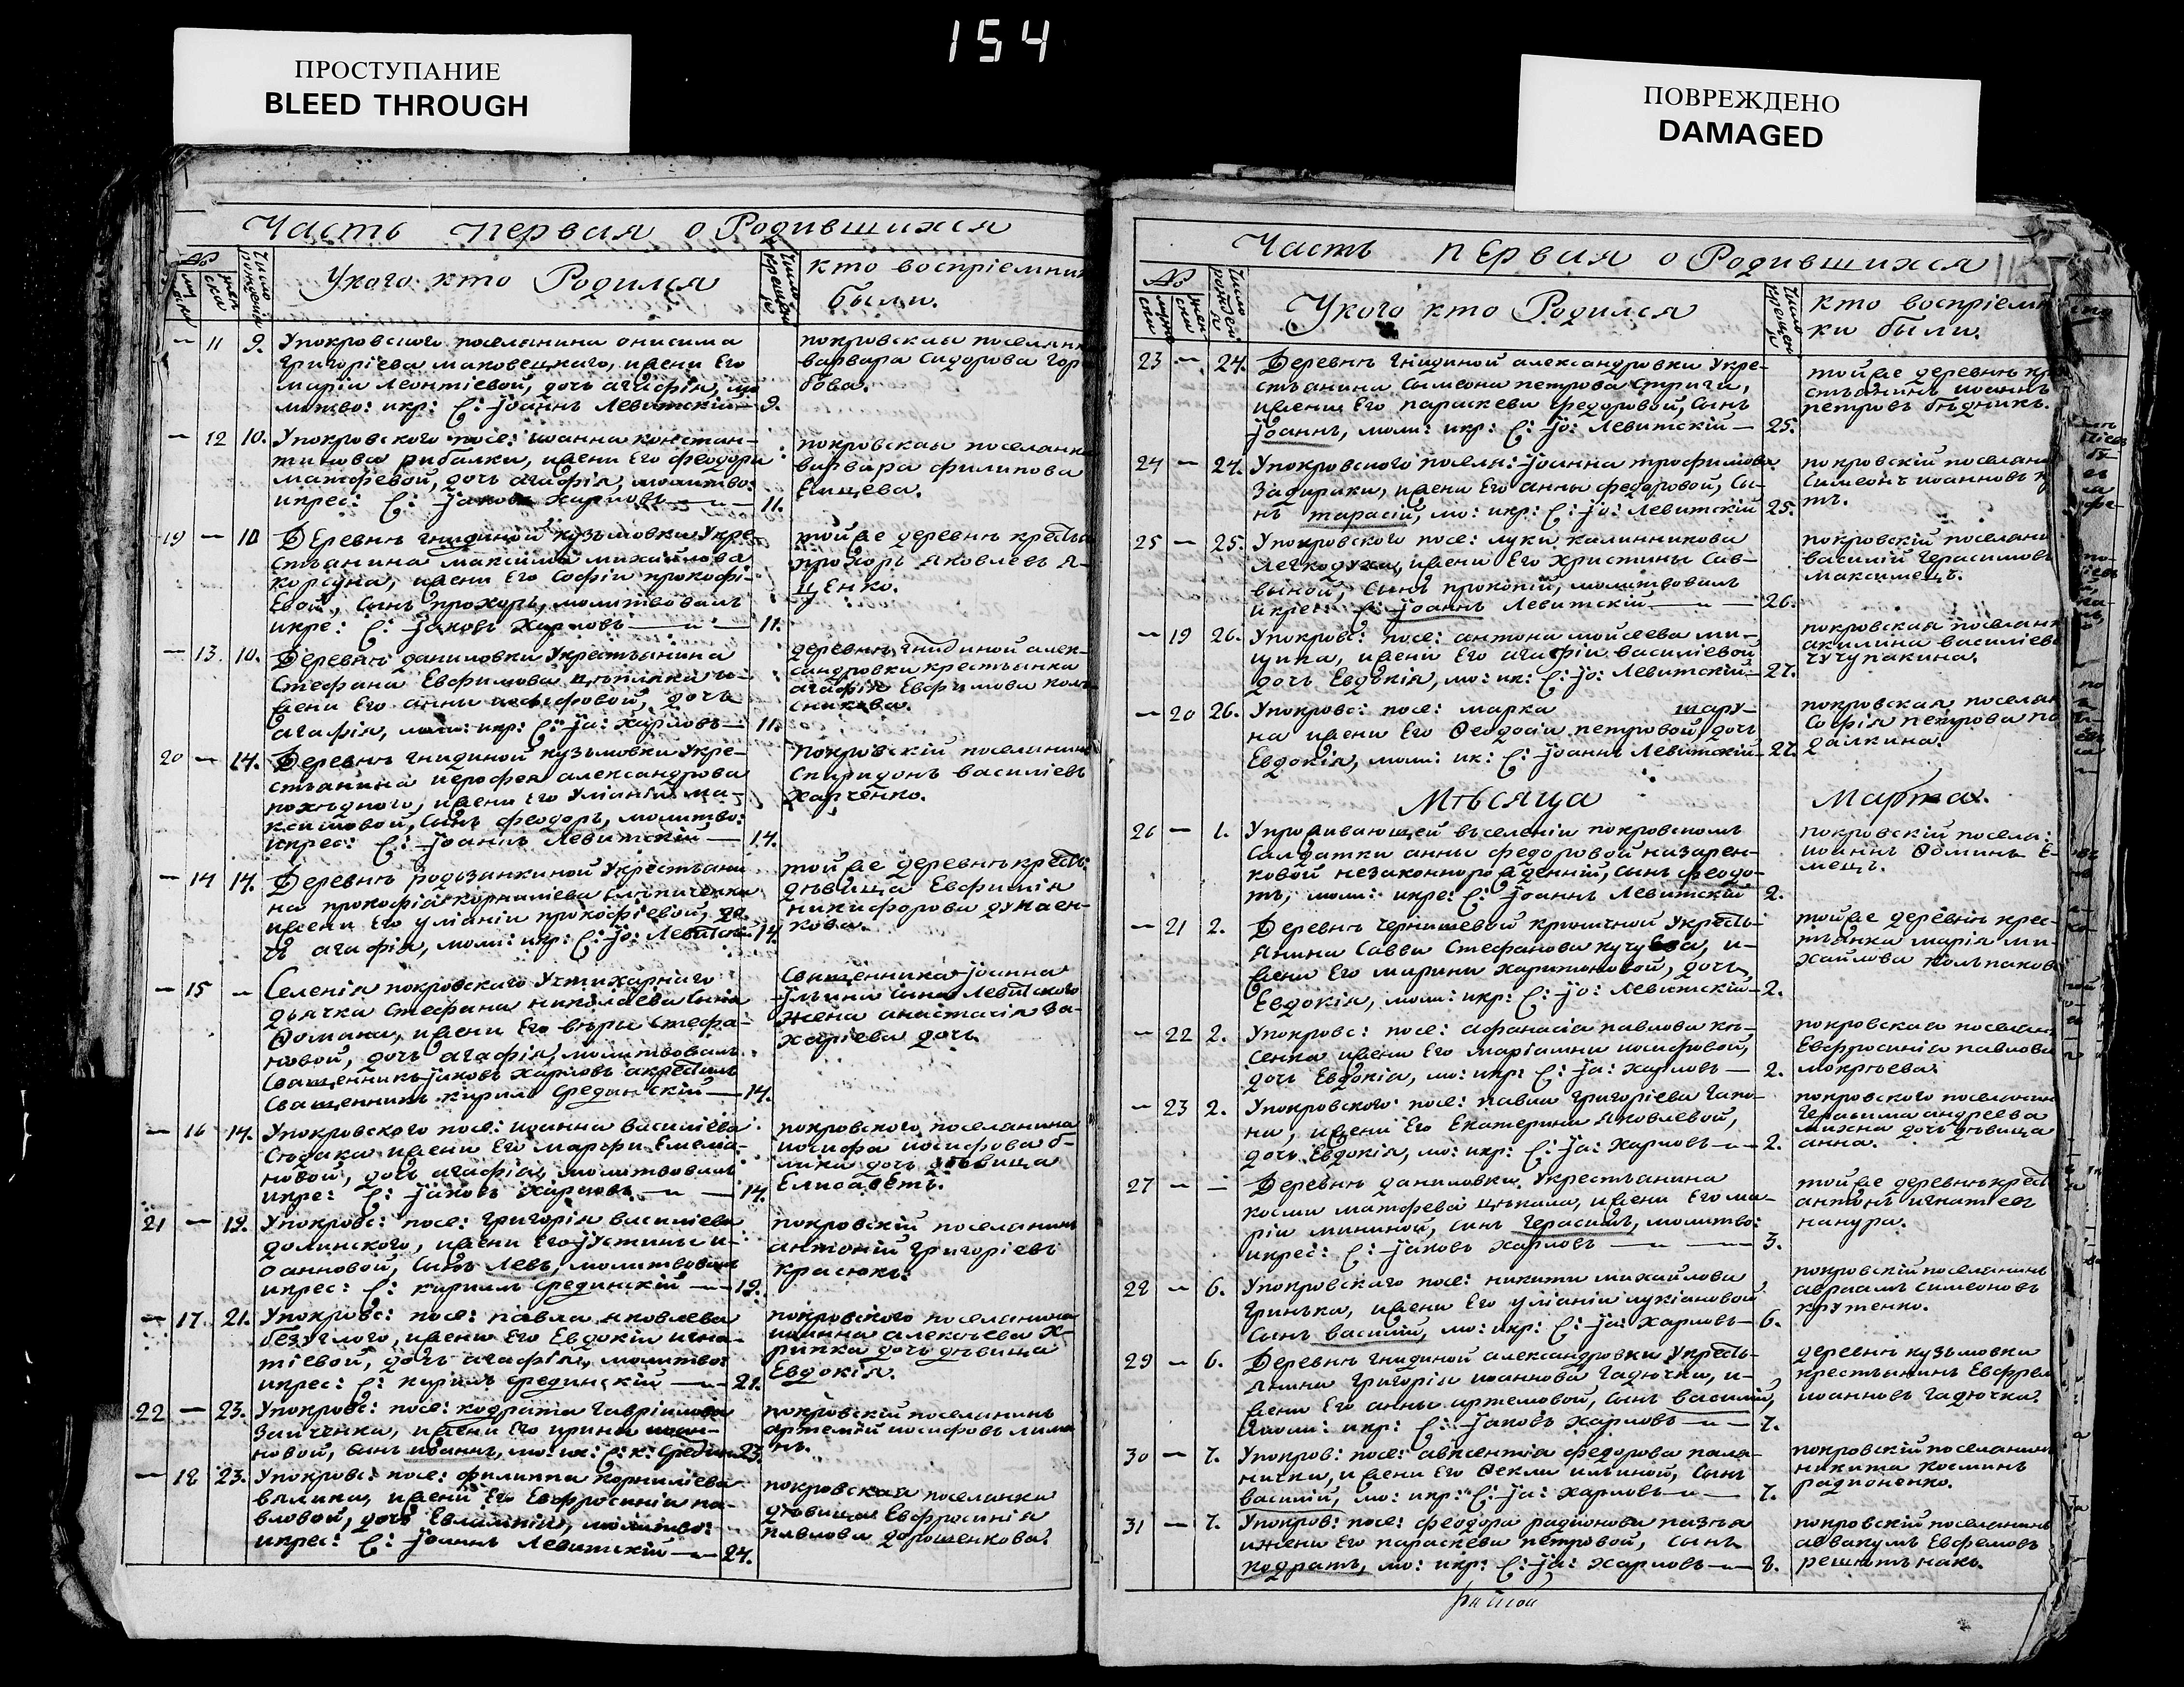 154
ПРОСТУПАНИЕ
BLEED THROUGH
ПОВРЕЖДЕНО
DAMAGED
Часть первая о Родившихся
№
Число рождения
Укого кто Родился
Число крещения
кто воспріемни
были.
— 11 9. Упокровского поселянина онисима
Григоріева маковецкаго, ижени Его
маріи Леонтіевой, дочь агафія, мо
литво: икр: С: Іоаннъ Левитскій — 9.
покровская поселянк
варвара Сидорова Гор
бова.
— 12 10. Упокровского посе: иоанна констан-
тинова рибалки, ижени Его феодори
матфевой, дочь агафія, молитво:
икрес: С: Іаковъ Харловъ — 11.
покровская поселянк
варвара филипова
Емцева.
19 — 10 Деревнѣ гнидиной кузьмовки Укре-
стьанина максима михайлова
корсуна, ижени Его Софіи прокофі-
Евой, Сынъ прохоръ, молитвовалъ
икре: С: Іаковъ Харловъ — 11.
тойже деревнѣ кресть
прохоръ Яковлевъ Я-
ценко.
— 13. 10. Деревнѣ даниловки Укрестьанина
Стефана Евфимова цѣпляка и-
жени Его анни иосифовой, дочь
агафія, моли: икр: С: Іа: Харловъ — 11.
деревнѣ гнидиной алек-
сандровки крестьянка
агафія Евфимова колѣ
сникова.
20 — 14. Деревнѣ гнидиной кузьмовки Укре-
стьанина иерофея александрова
похѣдного, ижени Его Уліаніи ма-
ксимовой, Сынъ феодоръ, молитво:
икрес: С: Іоаннъ Левитскій — 14.
Покровскій поселянинъ
Спиридонъ василіевъ
Харченко.
— 14 14. Деревнѣ родзанкиной Укрестьани
на прокофія корниліева
ижени Его уліаніи прокофіевой, до
чь агафія, моли: икр: С: Іо: Левитскі 14.
тойже деревнѣ кресть
дѣвица Евфимія
никифорова дунаен-
кова.
— 15 — Селенія покровского Учтихарнаго
дьячка Стефана николаева Сына
Фомани, ижени Его вѣри Стефа-
новой, дочь агафія, молитвовалъ
Священникъ Іаковъ Харловъ акрестилъ
Священникъ кирилъ Срединскій — 14.
Священника Іоанна
Ільина Сына Левитского
жена анастасія За-
харіева дочь
— 16 14. Упокровского посе: иоанна василіева
Сѣдака ижени Его марфи Емелиа-
новой, дочь агафія, молитвовалъ
икре: С: Іаковъ Харловъ — 14.
покровского поселянина
иосифа иосифова б-
лика дочь дѣвица
Елисаветъ.
21 — 19. Упокровс: посе: григорія василіева
долинского, ижени Его Іустиньи и-
оанновой, Сынъ Левъ, молитвовалъ
икрес: С: кирилъ Срединскій — 19.
покровскій поселянинъ
антоній григоріевъ
красюкъ.
— 17 21. Упокровс: посе: павла яковлева
безуглого, ижени Его Евдокіи игна-
тіевой, дочь агафія, молитво:
икрес: С: кирилъ Срединскій — 21.
покровского поселянина
иоанна алексѣева Х-
рипка дочь дѣвица
Евдокія.
22 — 23. Упокровс: посе: кодрата гавріилова
Заиченка, ижени Его ирини иоан-
новой, Сынъ иоаннъ, мо: ик: С: к: Средин 23.
покровскій поселянинъ
артемій иосифовъ
— 18 23. Упокровс: посе: филиппа корниліева
вялика, ижени Его Евфросиніи па-
вловой, дочь Евлампія, молитво:
икрес: С: Іоаннъ Левитскій — 24.
покровская поселянки
дѣвица Евфросинія
павлова дорошенкова.
Часть первая о Родившихся
№
Число рожденія
Укого кто Родился
Число крещения
кто воспріемни
ки были.
23 — 24. Деревнѣ гнидиной александровки Укре-
стьанина Симеона петрова Стриги,
ижени Его параскеви федоровой, Сынъ
Іоаннъ, моли: икр: С: Іо: Левитскій — 25.
тойже деревнѣ кр
стьанинъ иоаннъ
петровъ бѣдникъ.
24 — 24. Упокровского поселя: Іоанна трофимова
Задираки, ижени Его анны федоровой, Сы-
нъ тарасій, мо: икр: С: Іо: Левитскій 25.
покровскій поселяни
Симеонъ иоанновъ
25 — 25. Упокровского посе: луки калинникова
Легкодуха, ижени Его Христины Сав-
виной, Сынъ прокопій, молитвовалъ
икрес: С: Іоаннъ Левитскій — 26.
покровскій поселяни
василій герасимовъ
максимецъ.
— 19 26. Упокровс: посе: антона мойсеева ми-
щика, ижени Его агафіи василіевой
дочь Евдокія, мо: ик: С: Іо: Левитскій — 27.
покровская поселянк
акилина василіева
чучупакина.
— 20 26. Упокровс: посе: марка шару-
на ижени Его Феодосіи петровой, дочь
Евдокія, моли: ик: С: Іоаннъ Левитскій — 27.
покровская поселян
Софія петрова по
далкина.
Мѣсяца Марта.
26 — 1. Упроживающей въселеніи покровскомъ
Салдатки анны федоровой назарен-
ковой незаконнорожденній, Сынъ феодо-
тъ, моли: икре: С: Іоаннъ Левитскій 2.
покровскій посела:
иоаннъ Фоминъ Е-
мецъ.
— 21 2. Деревнѣ чернишевой криничной Укресть-
янина Савви Стефанова, и-
жени Его марини харитоновой, дочь
Евдокія, моли: икр: С: Іо: Левитскій — 2.
тойже деревнѣ крес-
тьянка марія ми-
хайлова колпаков
— 22 2. Упокровс: посе: афанасіа павлова
сенка ижени Его маріамни иосифовой,
дочь Евдокія, мо: икр: С: Іа: Харловъ — 2.
покровская поселян
Евфросинія павлова
мокрѣева.
— 23 2. Упокровского посе: павла григоріева гапо-
ни, ижени Его Екатерини Яковлевой,
дочь Евдокія, мо: икр: С: Іа: Харловъ — 2.
покровского поселянин
герасима андреева
дочь дѣвица
анна.
27 — — Деревнѣ даниловки Укрестьанина
косми матфева цѣпала, ижени Его ма-
ріи мининой, Синъ герасимъ, молитво:
икрес: С: Іаковъ Харловъ — 3.
тойже деревнѣ крест
антонъ игнатіевъ
канура.
28 — 6. Упокровскаго посе: никити михайлова
Гринька, ижени Его уліаніи лукіановой
Сынъ василій, мо: икр: С: Іа: Харловъ — 6.
покровскій поселянинъ
авраамъ Симеоновъ
крутенко.
29 — 6. Деревнѣ гнидиной александровки Укресть-
янина григорія иоаннова гадючки, и-
жени Его анны артемовой, Сынъ василій,
моли: икр: С: Іаковъ Харловъ — 7.
деревнѣ кузьмовки
крестьянинъ Евфрем
иоанновъ гадючка.
30 — 7. Упокров: посе: авксентіа федорова пала-
нички, ижени Его Феклы ильиной, Сынъ
василій, мо: икр: С: Іа: Харловъ — 7.
покровскій поселянинъ
никита косминъ
радионенко.
31 — 7. Упокров: посе: феодора радионова
ижени Его параскеви петровой, Сынъ
кодратъ, мо: икр: С: Іа: Харловъ — 8.
покровскій поселянинъ
аввакумъ Евфемовъ
решотнякъ.